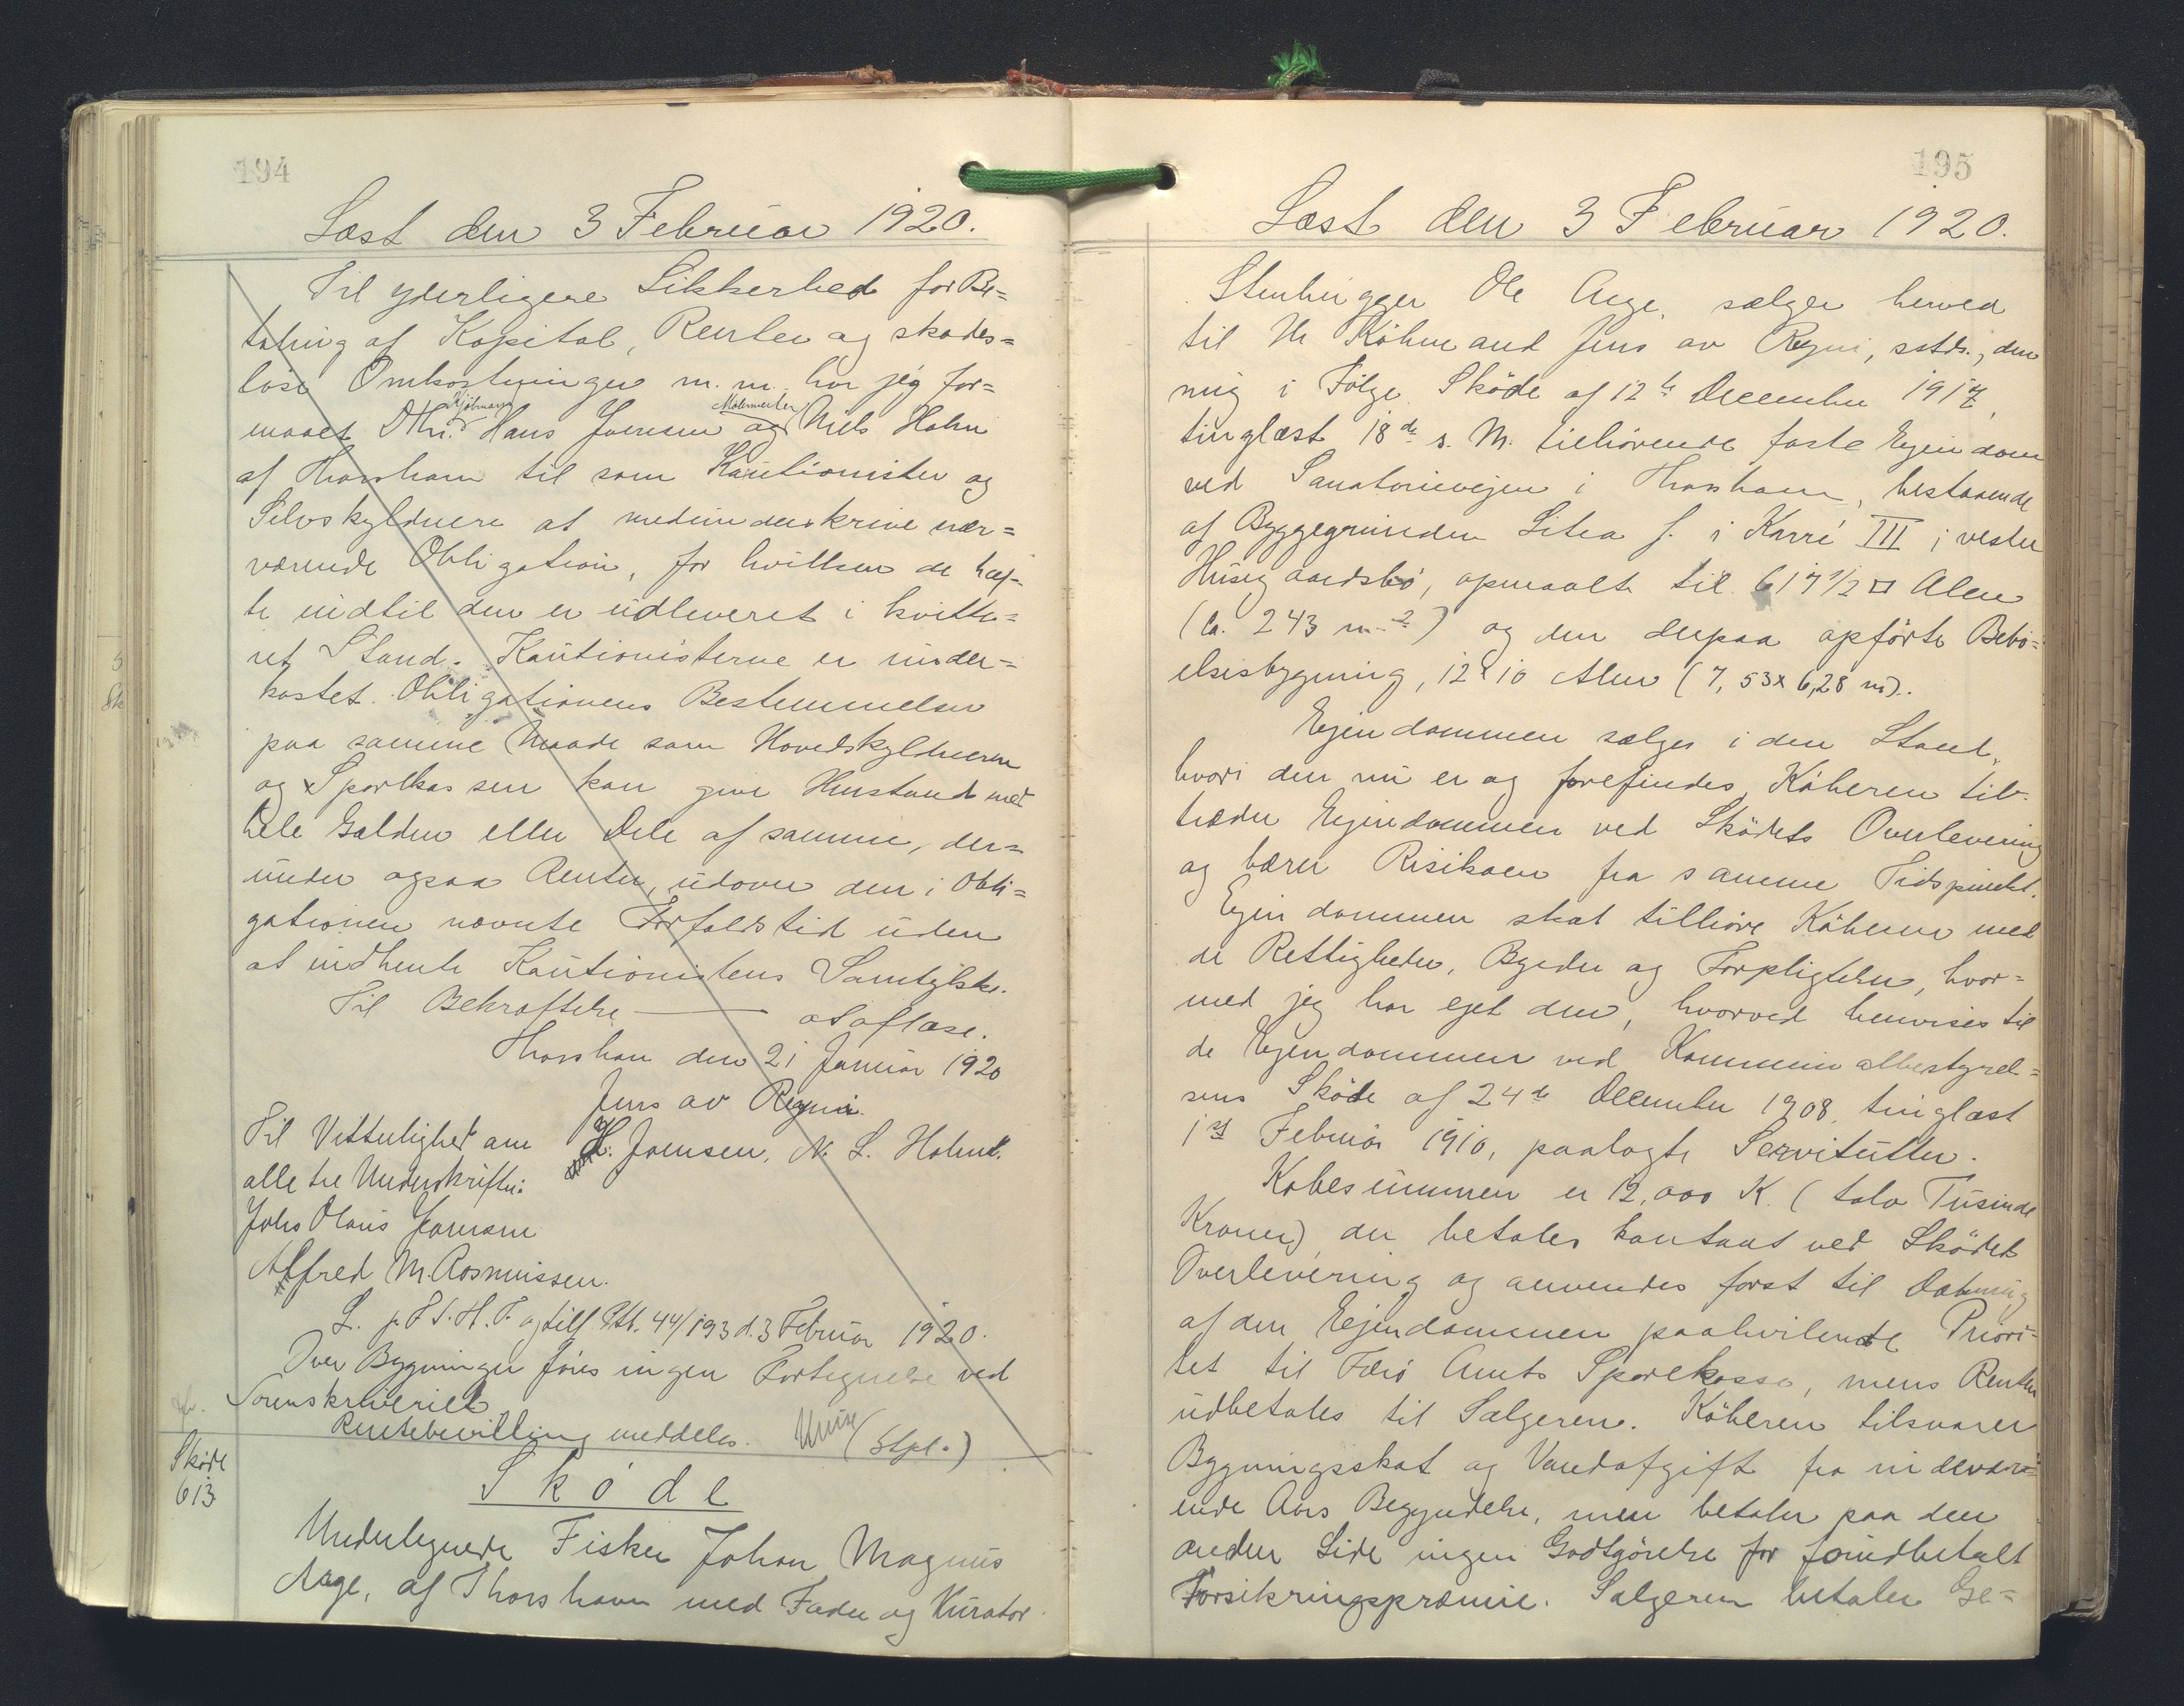 194
Læst den 3 Februar 1920.
Til yderligere Sikkerhed for Be=
taling af Kapital, Renter og skades=
løse Omkostninger m.m. har jeg for=
maaet DHrr. Kjøbmand Hans Joensen og Malermester Niels Holm
af Thorshavn til som Kautionister og
Selvskyldnere at medunderskrive nær=
værende Obligation, for hvilken de hæf=
te indtil den er udleveret i kvitte=
ret Stand. Kautionisterne er under=
kastet Obligationens Bestemmelser
paa samme Maade som Hovedskyldneren
og Sparekassen kan give Henstand med
hele Gælden eller Dele af samme, der=
under ogsaa Renter, udover den i Obli=
gationen nævnte Forfaldstid uden
at indhente Kautionistens Samtykke.
Til Bekræftelse — at aflæse.
Thorshavn den 21 Januar 1920
Jens av Reyni.
Til Vitterlighed om H. Joensen, N. L. Holm.
alle tre Underskrifter:
Johs Olavis Joensen
Alfred M. Rasmussen.
L. p. F S. H. T. og till. Ptb. 44/193 d. 3 Februar 1920.
Over Bygninger føres ingen Fortegnelse ved
Sorenskriveriet
Rentebevilling meddeles. (Stpl.)
Skøde
613
Skøde
Undertegnede Fisker Johan Magnus
Arge, af Thorshavn med Fader og Kurator
195
Læst den 3 Februar 1920.
Stenhugger Ole Arge, sælger herved
til Hr Købmand Jens av Reyni, sstds., den
mig i Følge Skøde af 12te December 1917,
tinglæst 18de s. M. tilhørende faste Ejendom
ved Sanatorievejen i Thorshavn, bestaaende
af Byggegrunden Litra f. i Karré III i vester
Husegaardsbø, opmaalt til 617 1/2 □ Alen
(ca. 243 m2) og den derpaa opførte Bebo=
elsesbygning, 12 x 10 Alen (7,53 x 6,28 m).
Ejendommen sælges i den Stand,
hvori den nu er og forefindes, Køberen til=
træder Ejendommen ved Skødets Overlevering
og bærer Risikoen fra samme Tidspunkt.
Ejendommen skal tilhøre Køberen med
de Rettigheder, Byrder og Forpligtelser, hvor=
med jeg har ejet den, hvorved henvises til
de Ejendommen ved Kommunalbestyrel=
sens Skøde af 24de December 1908, tinglæst
1st Februar 1910, paalagte Servitutter.
Købesummen er 12,000 K. (tolv Tusinde
Kroner), der betales kontant ved Skødets
Overlevering og anvendes først til Dækning
af den Ejendommen paahvilende Priori=
tet til Færø Amts Sparekasse, mens Resten
udbetales til Sælgeren. Køberen tilsvarer
Bygningsskat og Vandafgift fra indevær=
ende Aars Begyndelse, men betaler paa den
anden Side ingen Godtgørelse for forudbetalt
Forsikringspræmie. Sælgeren betaler Ge=